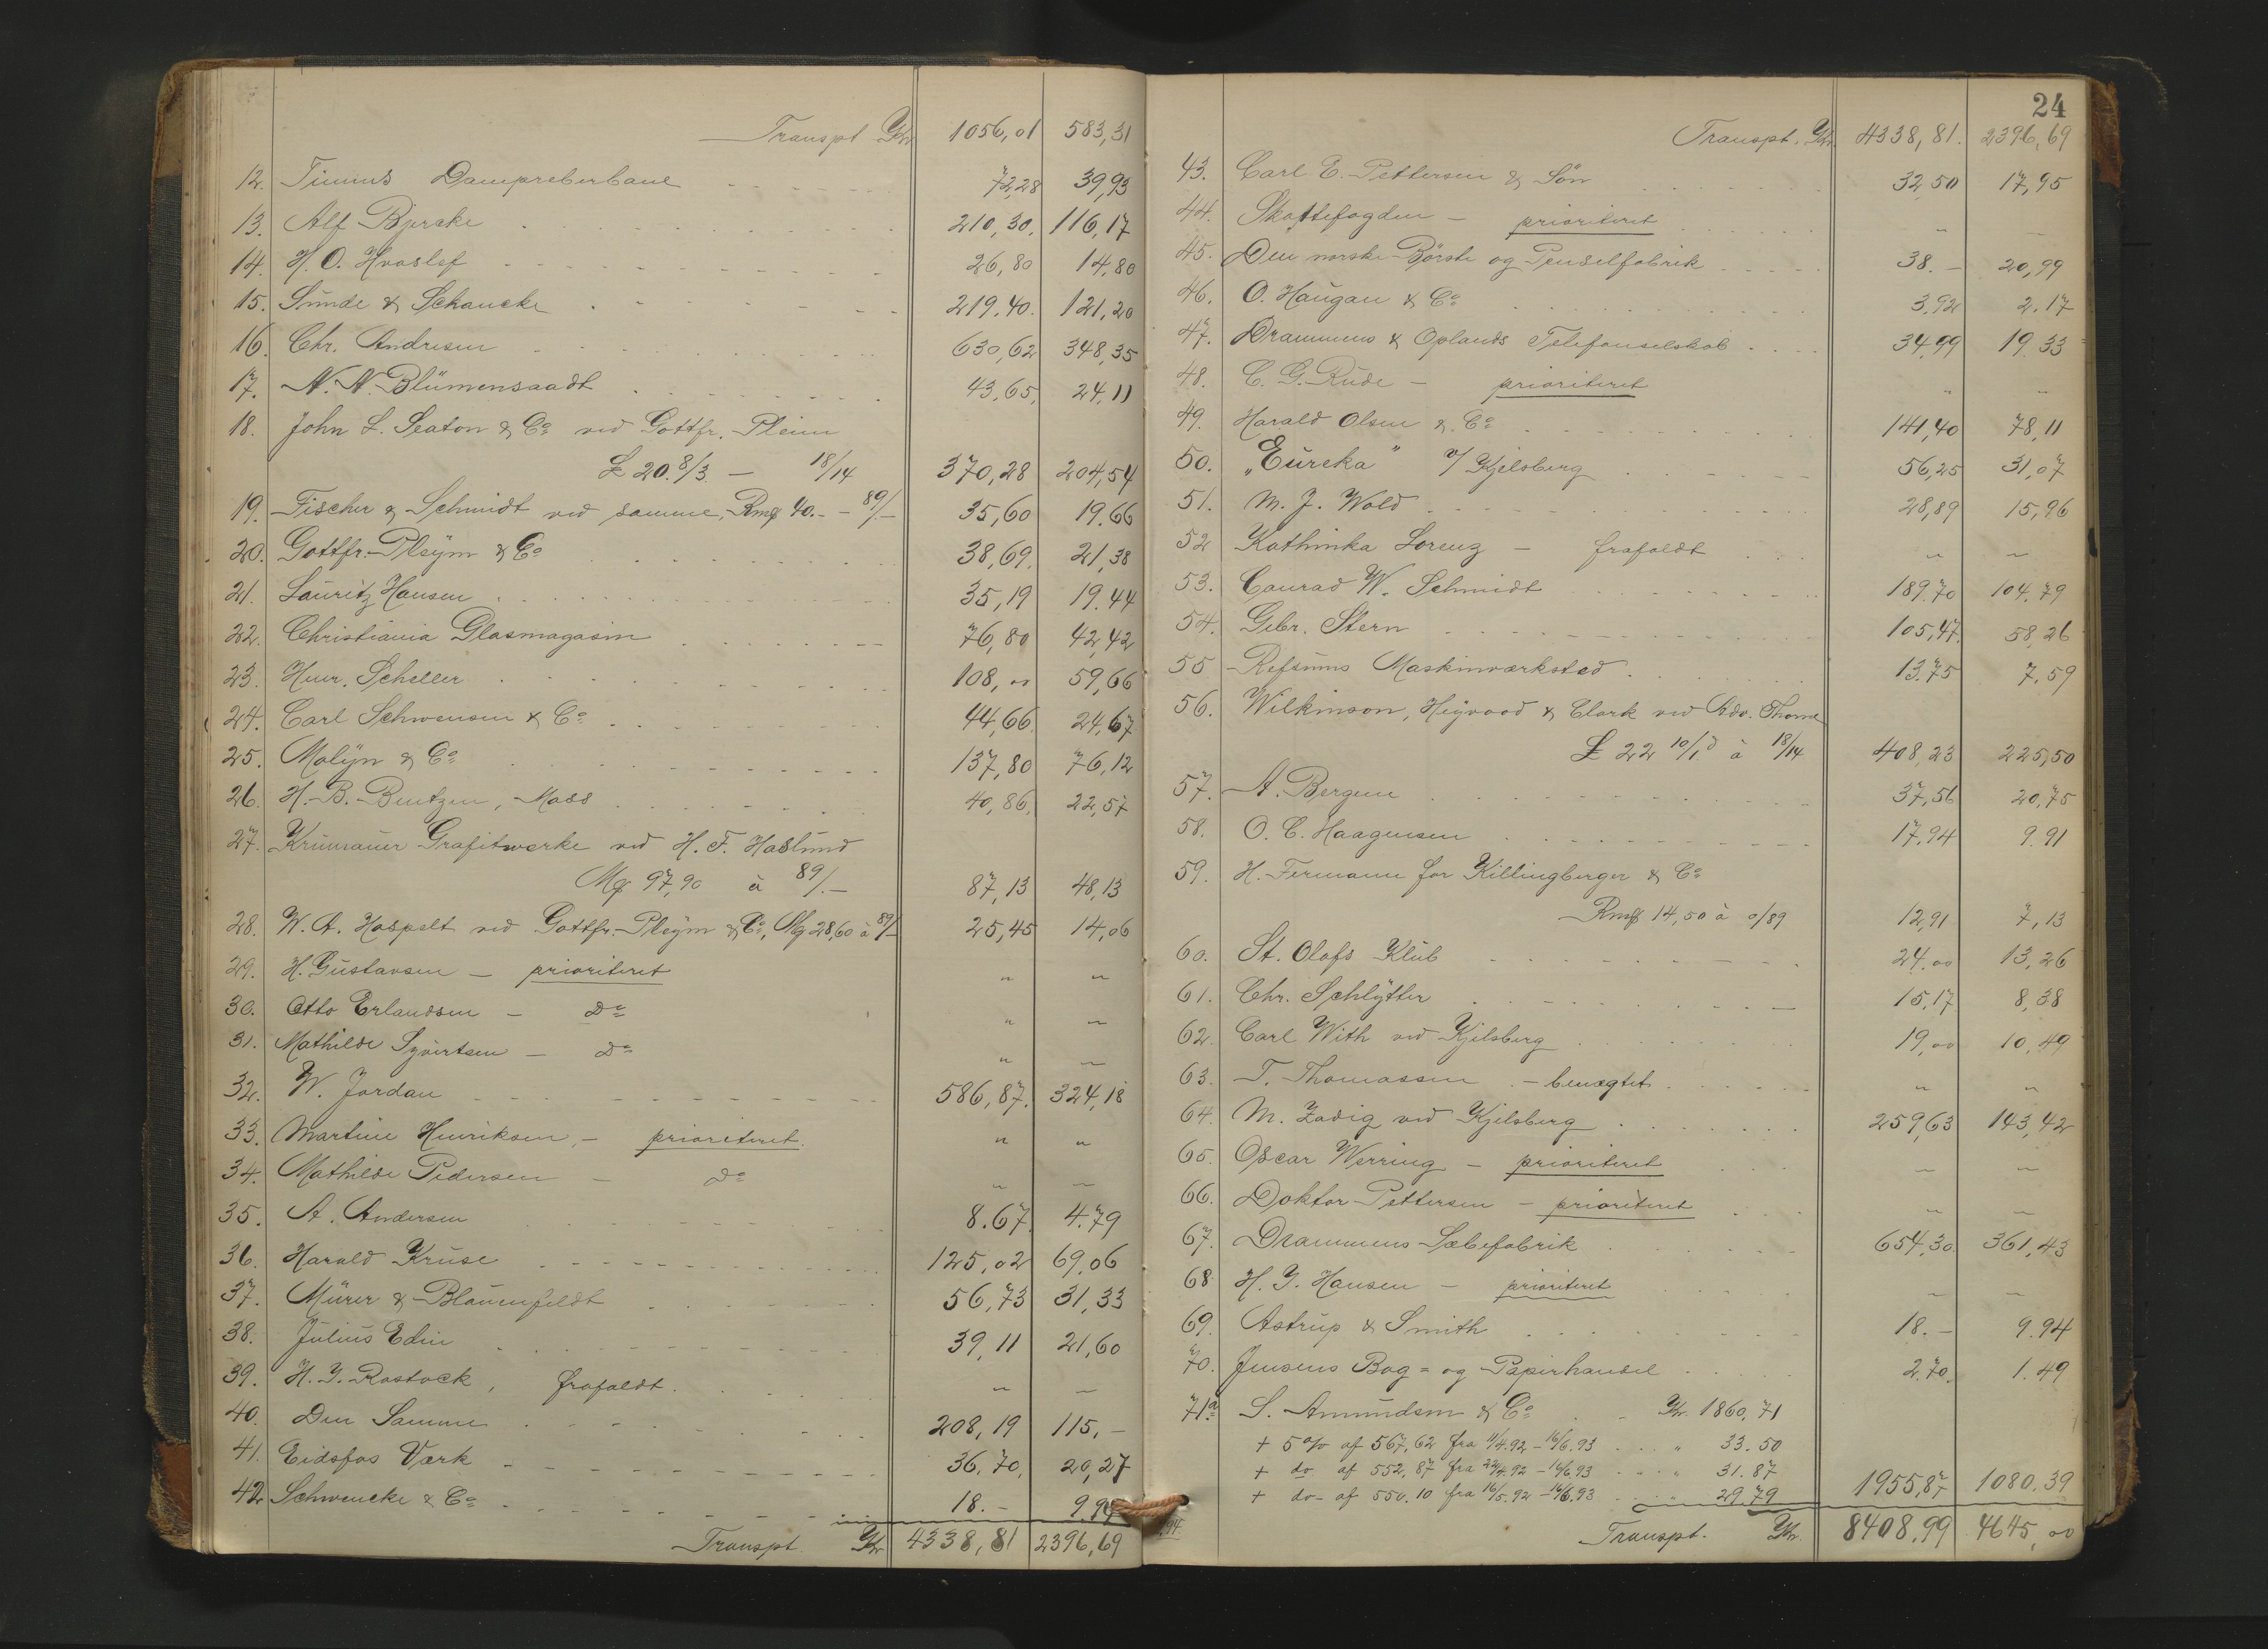 Transpt Kr 1056,01 583,31
12. Timms Dampreberbane 72,28 39,93
13. Alf Bjercke 210,30. 116,17
14. H. O. Hvoslef 26,80 14,80
15. Sunde & Schancke 219.40. 121,20
16. Chr. Andresen 630,62 348,35
17. N. N. Blümensaadt 43,65, 24,11
18. John L. Seaton & Co ved Gottfr. Pleim
£ 20.8/3. — 18/14 370,28 204,54
19. Fischer & Schmidt ved samme, Rmq 40.- - 89/.- 35,60 19.66
20. Gottfr. Pleÿm & Co 38,69. 21,38
21. Lauritz Hansen 35,19 19.44
22. Christiania Glasmagasin 76,80 42,42
23. Henr. Scheller 108,00 59,66
24. Carl Schwensen & Co 44,66 24,67
25. Molÿn & Co 137,80 76,12
26. H. B. Bentzen, Moss 40,86. 22,57
27. Krumauer Grafitwerke ved H. F. Haslund
Mq 97,90 à 89/.- 87,13 48,13
28. W. A. Hospelt ved Gottfr. Pleÿm & Co, Mq 28,60 à 89/- 25,45 14,06
29. H. Gustavsen — prioriteret " "
30. Otto Erlandsen — Do " "
31. Mathilde Syvertsen — Do " "
32. W. Jordan 586,87. 324,18
33. Martine Henriksen, — prioriteret. " "
34. Mathilde Pedersen — Do " "
35. A. Andersen 8.67. 4.79
36. Harald Kruse 125,02 69.06
37. Mürer & Blauenfeldt 56,73 31,33
38. Julius Edin 39,11 21,60
39. H. J. Rostock, frafaldt. " "
40. Den Samme 208,19 115,-
41. Eidsfos Værk 36.70, 20,27
42. Schwencke & Co 18.- 9.94
Transpt Kr 4338,81 2396,69
24
Transpt. Kr. 4338,81. 2396,69
43. Carl E. Pettersen & Sön 32,50 17,95
44. Skattefogden — prioriteret " "
45. Den norske Börste og Penselfabrik 38.- 20,99
46. O. Haugan & Co 3.92 2.17
47. Drammens & Oplands Telefonselskab 34,99 19.33
48. C. G. Rude — prioriteret " "
49. Harald Olsen & Co 141,40 78,11
50. „Eureka" v/ Kjelsberg 56,25 31,07
51. M. J. Wold 28,89 15,96
52 Kathinka Lorenz — frafaldt " "
53. Conrad W. Schmidt 189.70 104.79
54. Gebr. Stern 105,47. 58,26
55 Refsums Maskinværksted 13.75 7.59
56. Wilkinson, Heywood & Clark ved Adv. Thorne
£ 22 10/1 d à 18/14 408,23 225,50
57. A. Bergene 37,56 20,75
58. O. C. Haagensen 17,94 9.91
59. H. Fermann for Killingberger & Co
Rmq 14,50 à 0/89 12,91 7,13
60. St. Olafs Klub 24.00 13,26
61. Chr. Schlÿtter 15,17 8,38
62. Carl With ved Kjelsberg 19,00 10,49
63. T. Thomassen — benægtet " "
64. M. Zadig ved Kjelsberg 259,63 143,42
65. Oscar Werring — prioriteret " "
66. Doktor Pettersen — prioriteret " "
67. Drammens Sæbefabrik 654,30. 361,43
68 H. J. Hansen — prioriteret " "
69. Astrup & Smith 18.- 9.94
70. Jensens Bog= og Papirhandel 2.70. 1.49
71a S. Amundsen & Co Kr. 1860,71
+ 5% af 567,62 fra 11/4.92 - 16/6.93 " 33.50
+ do af 552,87 fra 22/4.92 - 16/6.93 " 31.87
+ do- af 550.10 fra 16/5.92 - 16/6.93 " 29.79 1955,87 1080.39
Transpt. Kr. 8408,99 4645,00